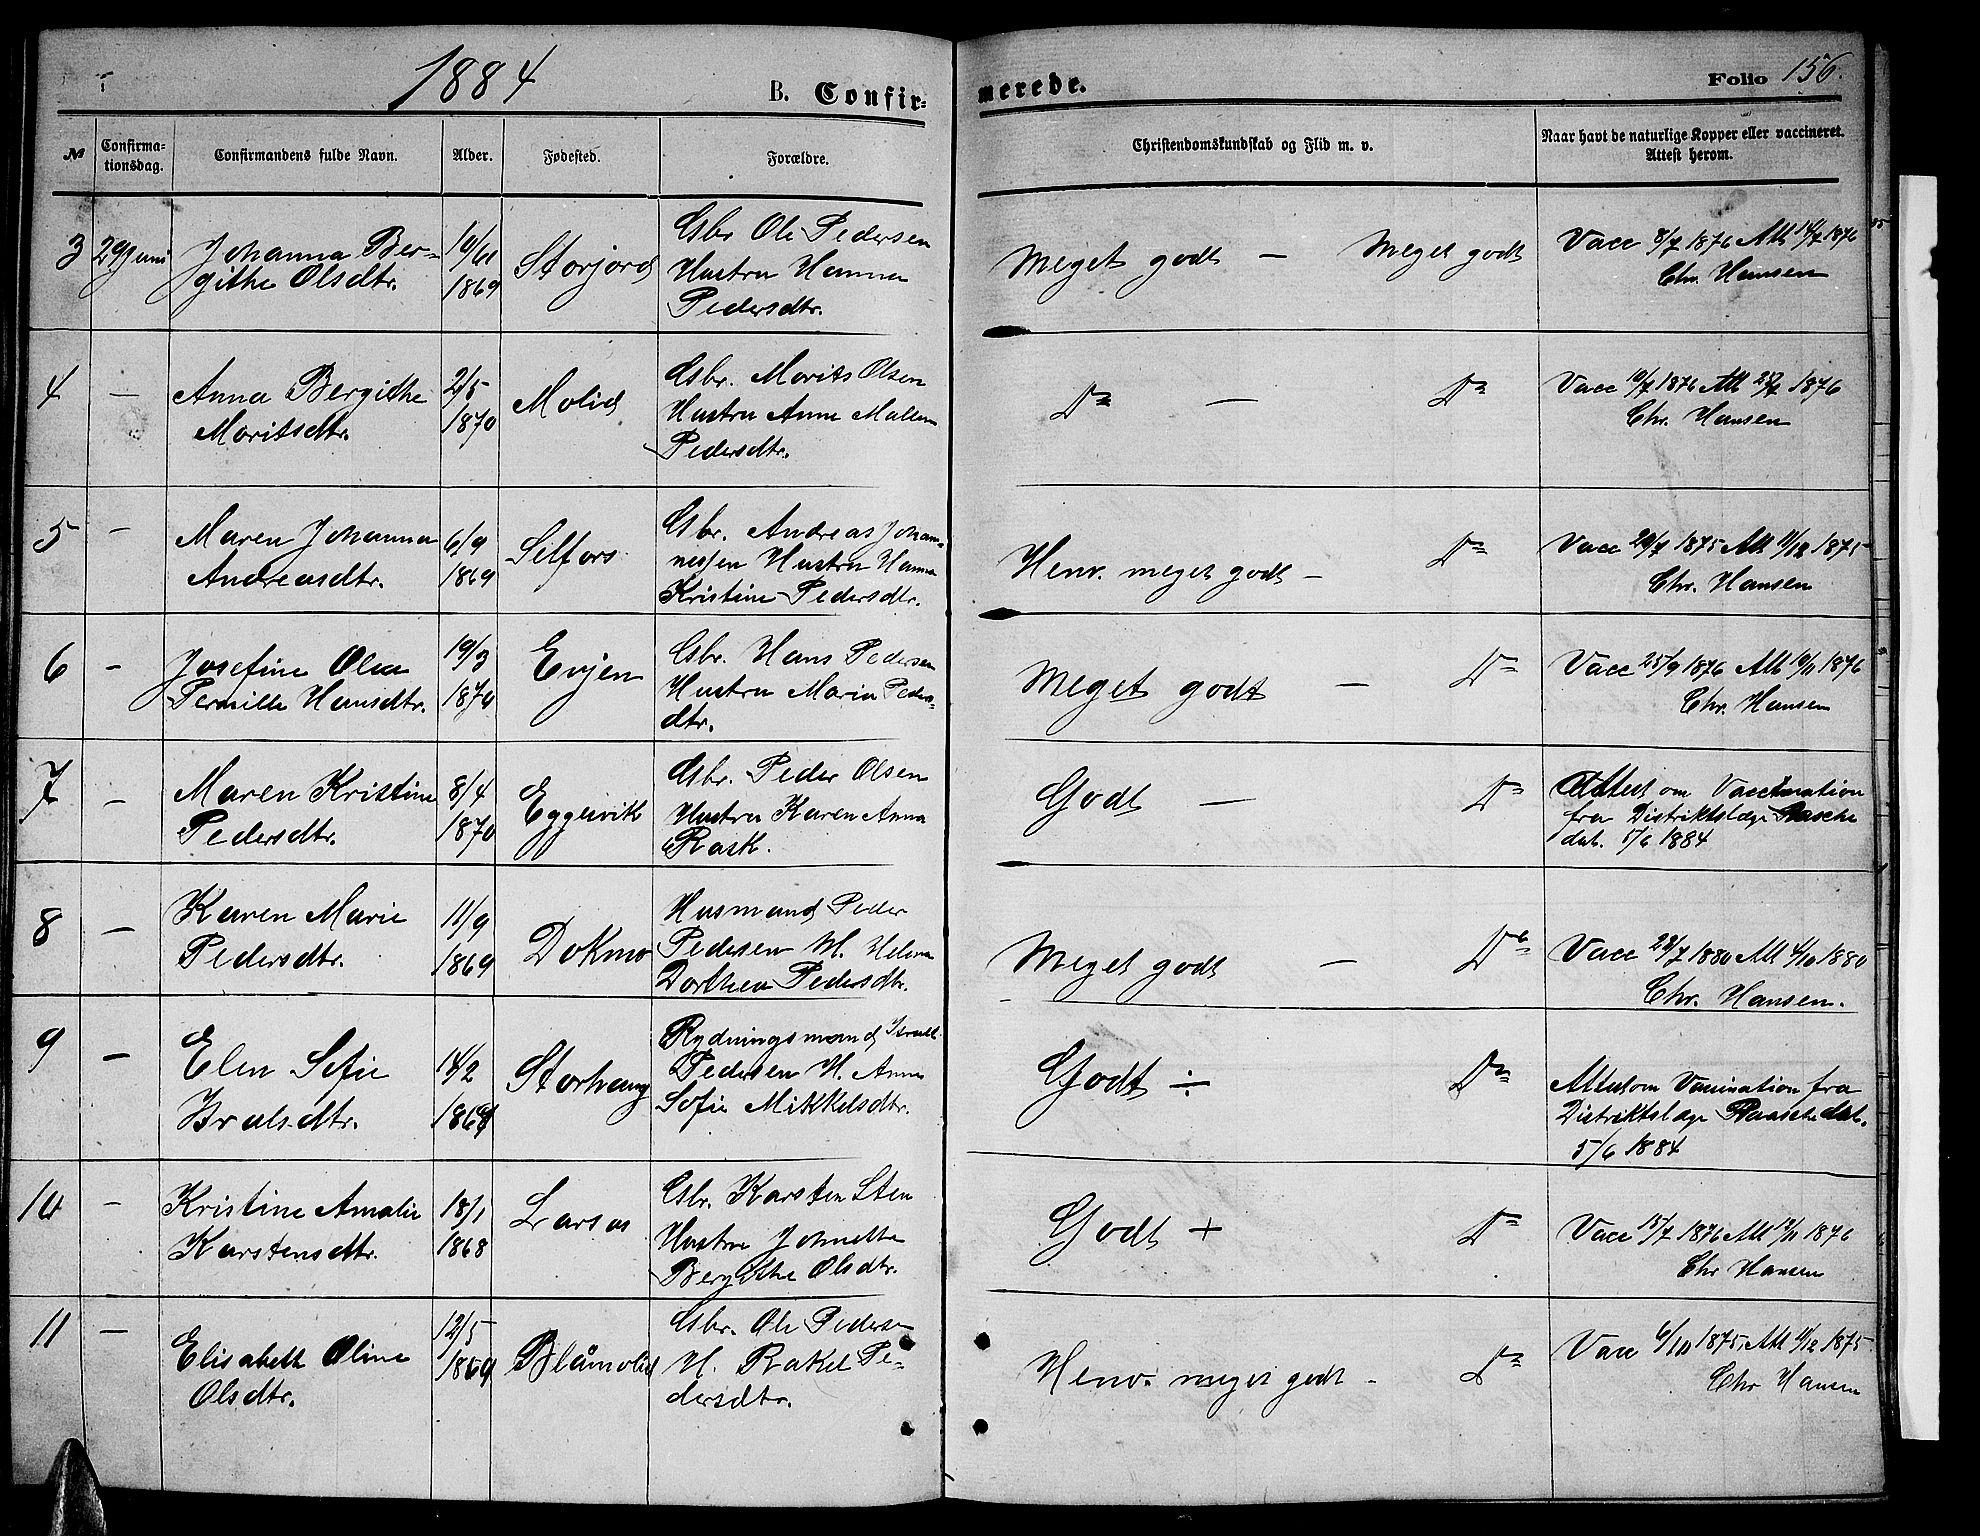 1884
B. Confir-
merede.
Folio 156.
№
Confirma-
tionsdag.
Confirmandens fulde Navn.
Alder.
Fødested.
Forældre.
Christendomskundskab og Flid m. v.
Naar havt de naturlige Kopper eller vaccineret.
Attest herom.
3 29 Juni Johanna Ber-
githe Olsdtr.
1869
Storjord
Gbr Ole Pedersen
Hustru Hanna
Pedersdtr.
Meget godt — Meget godt
Vacc 8/7 1876 Att 14/7 1876
Chr. Hansen
4 — Anna Bergithe
Moritsdtr.
2/5
1870
Molid
Gbr. Morits Olsen
Hustru Anne Malene
Pedersdtr.
Do — Do
Vacc 10/7 1876 Att 1876
Chr. Hansen
5 — Maren Johanna
Andreasdtr.
6/9
1869
Selfors
Gbr. Andreas Johan-
nesen Hustru Hanna
Kristine Pedersdtr.
Henv. meget godt — Do
Vacc 29/7 1875 Att 11/12 1875
Chr. Hansen
6 — Josefine Olea
Pernille Hansdtr.
19/3
1870
Evjen
Gbr. Hans Pedersen
Hustru Maria Peders-
dtr.
Meget godt — Do
Vacc 25/9 1876 Att 10/11 1876
Chr. Hansen
7 — Maren Kristine
Pedersdtr.
8/4
1870
Eggesvik
Gbr. Peder Olsen
Hustru Karen Anna
Rask.
Godt — Do
Attest om Vaccination
fra Distriktslæge Raasche
dat. 5/6 1884
8 — Karen Marie
Pedersdtr.
11/9
1869
Dokmo
Husmand Peder
Pedersen H. Helena
Dorthea Pedersdtr.
Meget godt — Do
Vacc 28/7 1880 Att 4/10 1880
Chr. Hansen.
9 — Elen Sofie
Isralsdtr.
14/2
1869
Storhaug
Rydningsmand Israel
Pedersen H. Anna
Sofie Mikkelsdtr.
Godt ÷ Do
Attest om Vaccination fra
Distriktslæge Raasche dat.
5/6 1884
10 — Kristine Amalie
Karstensdtr.
18/1
1868
Larsos
Gbr. Karsten Sten
Hustru Johnetta
Bergithe Olsdtr.
Godt + Do
Vacc 15/7 1876 Att 12/11 1876
Chr Hansen
11 — Elisabeth Oline
Olsdtr.
12/5
1869
Blåmolid
Gbr. Ole Pedersen
H. Rakel Pe-
dersdtr.
Henv. meget godt — Do
Vacc 6/10 1875, Att 11/12 1875
Chr Hansen